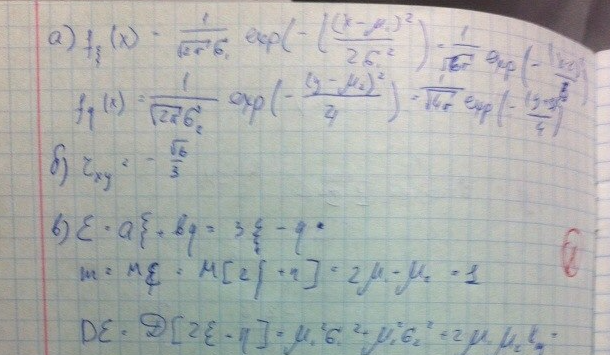 а) f_ξ(x) = 1/(√2π σ₁) exp(-((x-μ₁)²/2σ₁²) = 1/√6π exp(-
f_η(x) = 1/(√2π σ₂) exp(-(y-μ₂)²/4) = 1/√4π exp(-
б) r_xy = -√6/3
в) ε = aξ + bη = 3ξ - η
m = Mξ = M[2ξ + η] = 2μ₁ - μ₂ = 1
Dε = D[2ξ - η] = μ₁²σ₁² + μ₂²σ₂² + 2μ₁μ₂